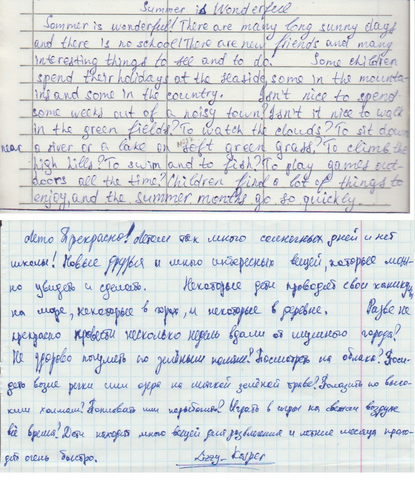 Summer is Wonderful
Sommer is wonderful! There are many long sunny days
and there is no school! There are new friends and many
interesting things to see and to do. Some children
spend their holidays at the seaside, some in the mounta-
ins and some in the country. Isn't nice to spend
some weeks out of a noisy town? Isn't it nice to walk
in the green fields? To watch the clouds? To sit down
near a river or a lake on soft green grass? To climb the
high hills? To swim and to fish? To play games out-
doors all the time? Children find a lot of things to
enjoy, and the summer months go so quickly.
Лето Прекрасно! Летом так много солнечных дней и нет
школы! Новые друзья и много интересных вещей, которые мож-
но увидеть и сделать. Некоторые дети проводят свои каникулы
на море, некоторые в горах, и некоторые в деревне. Разве не
прекрасно провести несколько недель вдали от шумного города?
Не здорово погулять по зелёным полям? Посмотреть на облака? Поси-
деть возле речки или озера на мягкой зелёной траве? Полазить по высо-
ким холмам? Поплавать или порыбачить? Играть в игры на свежем воздухе
всё время? Дети находят много вещей для развлечения и летние месяца прохо-
дят очень быстро. Lizzy-Kasper